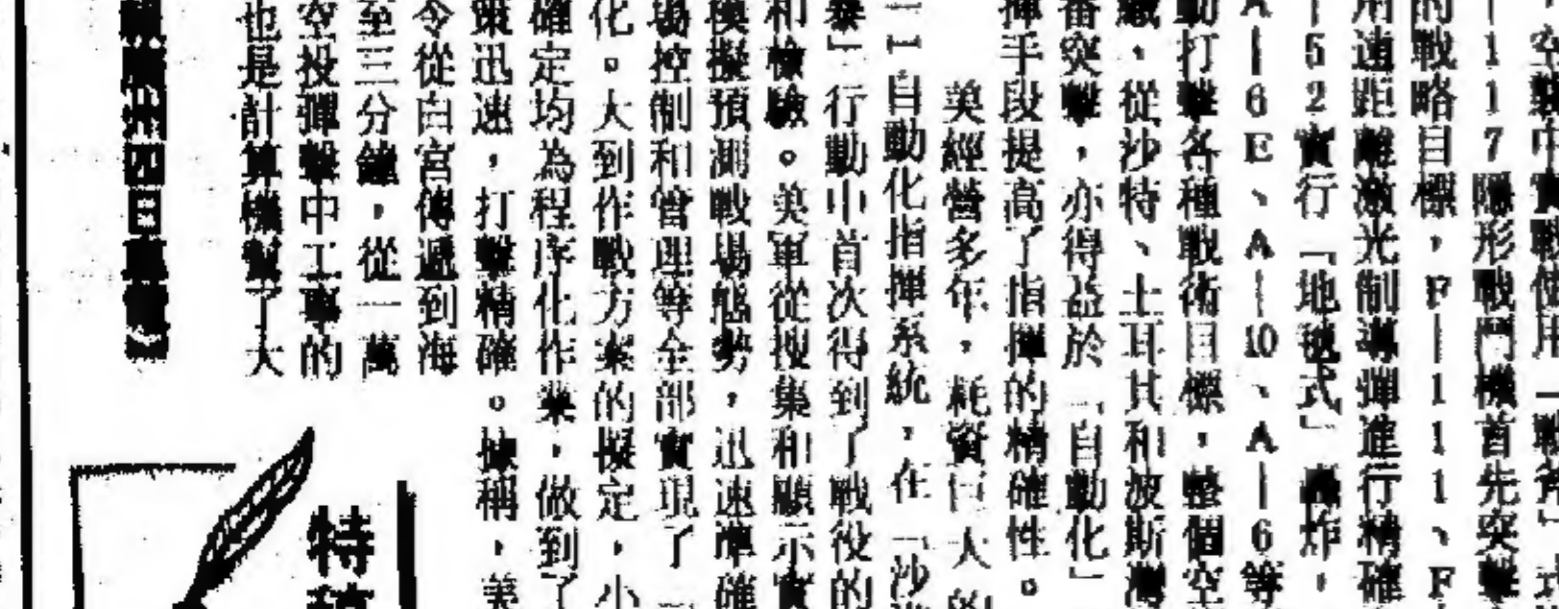 ，空襲中實戰使用「戰斧」式
｜117隱形戰鬥機首先突擊
的戰略目標，F｜111、F
用遠距離激光制導彈進行精確
｜52實行「地毯式」轟炸，
A｜6E、A｜10、A｜6等
動打擊各種戰術目標，整個空
，從沙特、土耳其和波斯灣
番突擊，亦得益於「自動化」
揮手段提高了指揮的精確性。
美經營多年，耗資巨大的
自動化指揮系統，在「沙漠
暴」行動中首次得到了戰役的
和檢驗。美軍從搜集和顯示實
模擬預測戰場態勢，迅速準確
場控制和管理等全部實現了「
化。大到作戰方案的擬定，小
確定均為程序化作業，做到了
策迅速，打擊精確。據稱，美
令從白宮傳遞到海
至三分鐘，從一萬
空投彈擊中工事的
也是計算機幫了大
州四日專電》
特稿